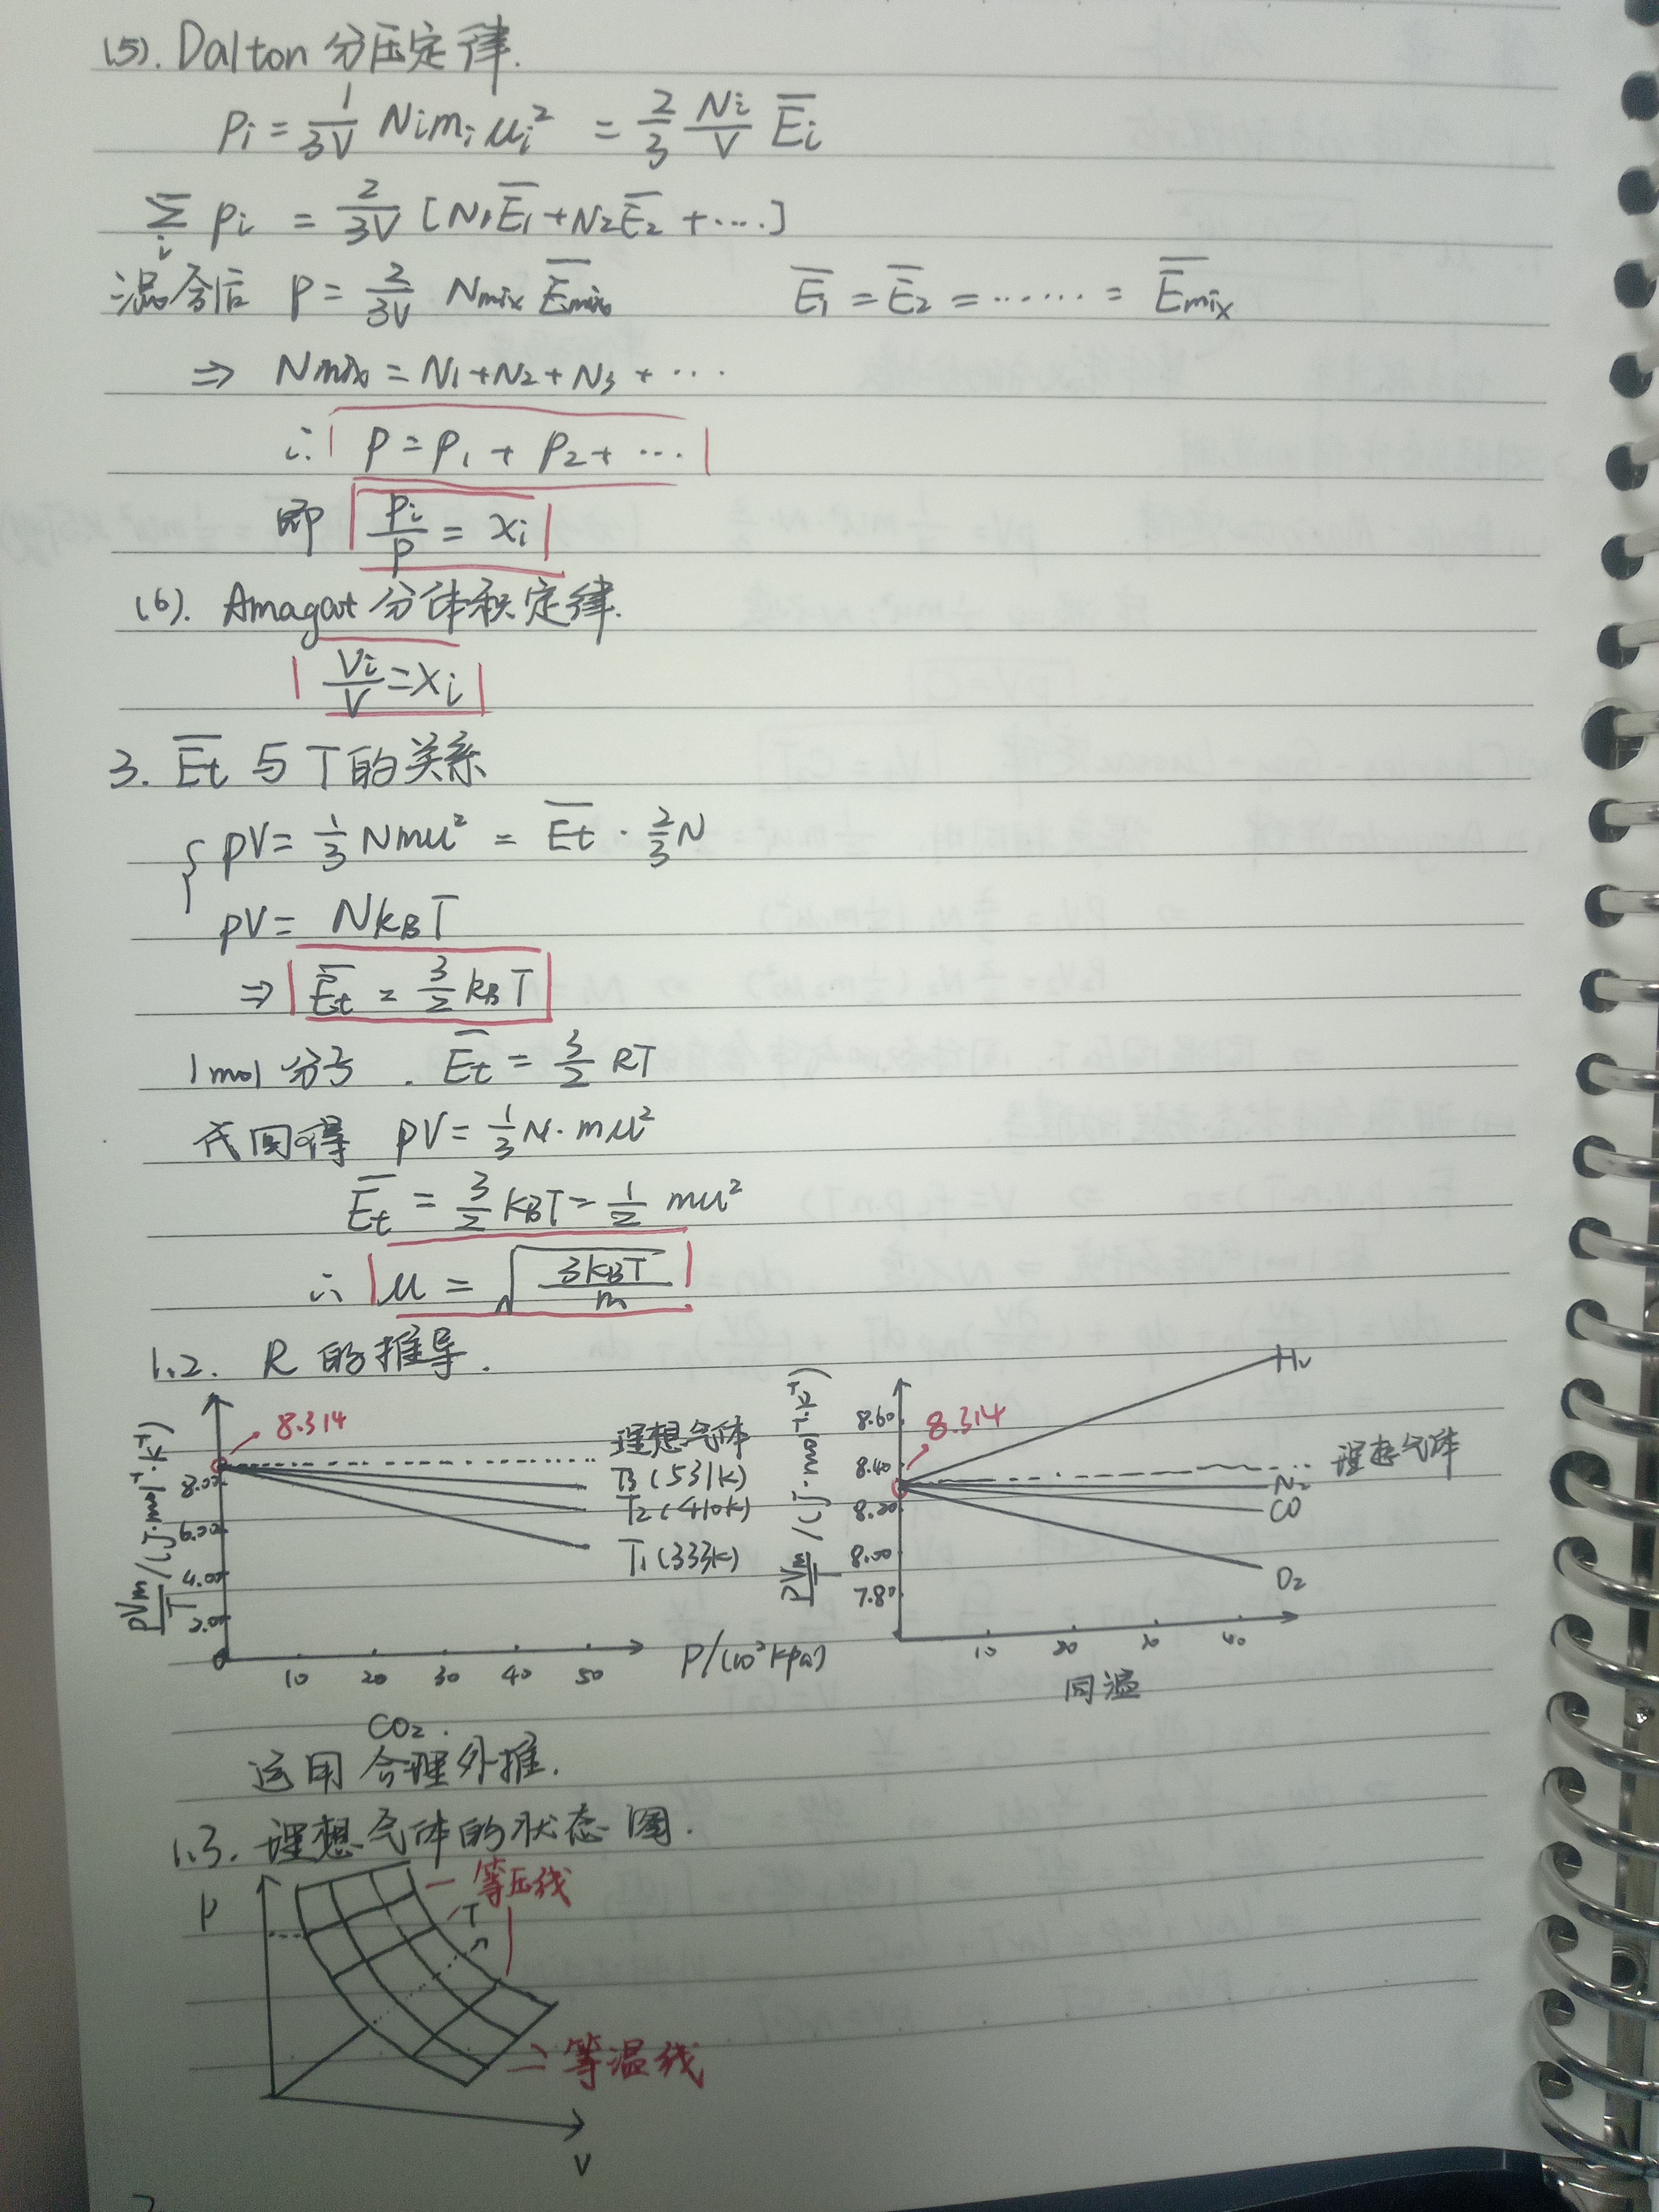 (5). Dalton 分压定律.
Pi = 1/3V Ni mi ui² = 2/3 Ni/V Ēi
Σi pi = 2/3V [N1Ē1 + N2Ē2 + ····]
混合后 P = 2/3V Nmix Ēmix    Ē1 = Ē2 = ······ = Ēmix
⇒ Nmix = N1 + N2 + N3 + ···
∴ P = P1 + P2 + ···
即 Pi/P = xi
(6). Amagat 分体积定律.
Vi/V = xi
3. Ēt 与 T 的关系
pV = 1/3 Nmu² = Ēt · 2/3 N
pV = NkBT
⇒ Ēt = 3/2 kBT
1mol 分子. Ēt = 3/2 RT
代回得 pV = 1/3 N·mu²
Ēt = 3/2 kBT = 1/2 mu²
∴ u = √(3kBT/m)
1.2. R 的推导.
8.314
pVm/T /(J·mol⁻¹·K⁻¹)
8.00
6.00
4.00
2.00
0
10 20 30 40 50
P/(10²kPa)
理想气体
T3 (531K)
T2 (410K)
T1 (333K)
CO2.
8.314
PVm/T /(J·mol⁻¹·K⁻¹)
8.60
8.40
8.20
8.00
7.80
10 20 30 40
H2
理想气体
N2
CO
O2
同温
运用合理外推.
1.3. 理想气体的状态图.
P
等压线
T
等温线
V